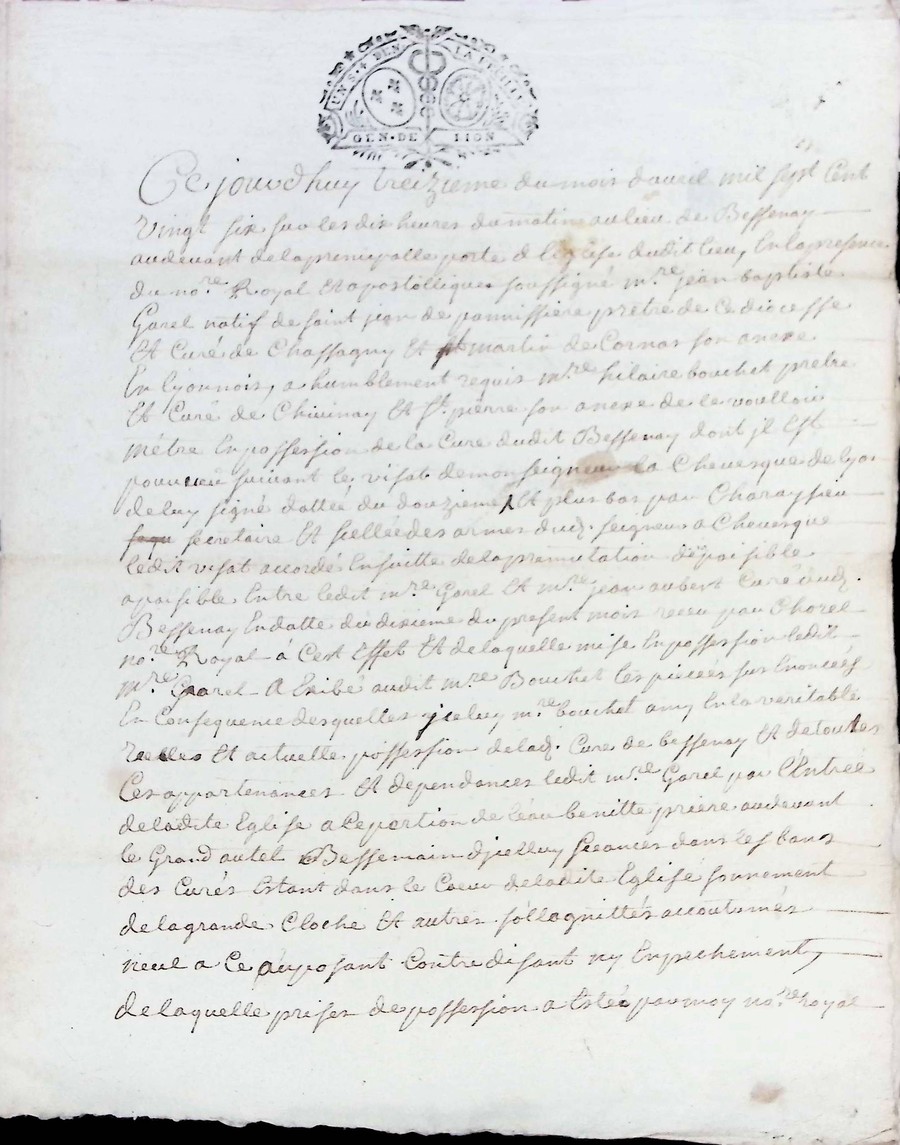 UN S. 4 DEN. LA FEUILLE
GEN. DE LION
Ce jourdhuy treizieme du mois davril mil sept Cent
vingt six sur les dix heures du matin au lieu de Bessenay
audevant de la principalle porte de l'eglise dudit lieu, En la presence
du no.re Royal Et apostollique soussigné m.re jean baptiste
Garel natif de saint jean de pannissiere prêtre de Ce diocesse
Et Curé de Chassagny Et st martin de Cornas son anexe
En lyonnois, a humblement requis m.re hilaire bouchet pretre
Et Curé de Chivinay Et st. pierre son anexe de le voulloir
métre En possession de la Cure dudit Bessenay dont jl Est
pourveu suivant le visat de monseigneur la Chevesque de lyon
de luy signé dattée du douzieme Et plus bas par Charaysieu
secretaire Et sçellée des armes dud. seigneur a Chevesque
ledit visat accordé Ensuitte de la premutation depaisible
apaisible Entre ledit m.re Garel Et m.re jean aubert Curé dud.
Bessenay En datte du dixieme du present mois receu par Chorel
no.re Royal á Cest Effet Et de laquelle mise En possession ledit
m.re Garel A Exibé audit m.re Bouchet les pieceés sus Enonceés
En Consequence desquelles jceluy m.re bouchet a my En la veritable
reelles Et actuelle possession de lad. Cure de bessenay Et de toutes
Ces appartenances Et dependances ledit m.re Garel par l'Entreé
de ladite Eglise aceportion de l'eau benitte priere audevant
le Grand autel Bessemain djcelluy séances dans les bans
des Curés Estant dans le Coeur de ladite Eglise sonnement
de la grande Cloche Et autres sollagnittés accoutumés
neul a Ce auposant Contredisant ny Enpechement,
de laquelle prises de possession a Estée par moy no.re royal